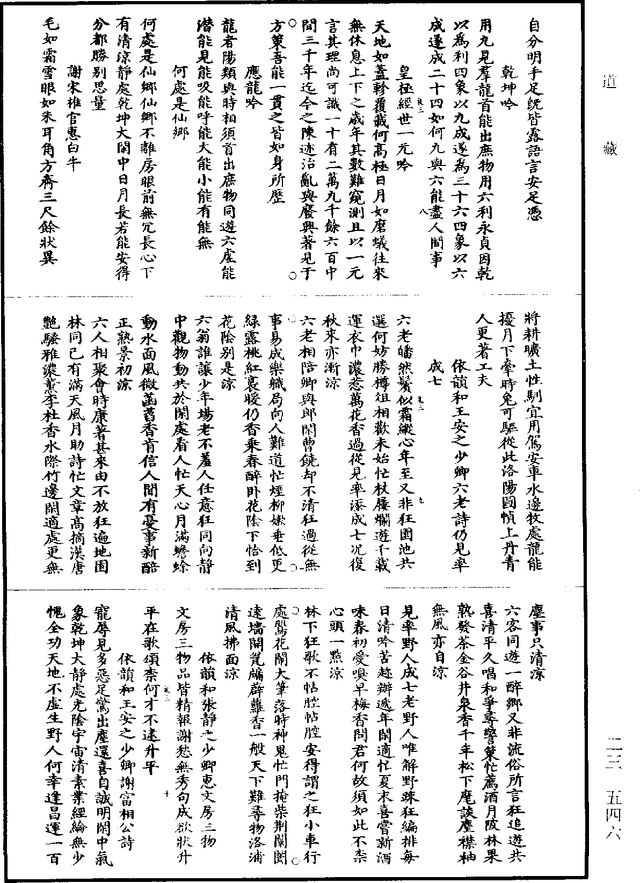 道藏
自分明手足旣皆露語言安足憑
乾坤吟
用九見羣龍首能出庶物用六利永貞因乾
以為利四象以九成遂為三十六四象以六
成遂成二十四如何九與六能盡人間事
皇極經世一元吟
天地如蓋軫覆載何高極日月如磨蟻往來
無休息上下之歲年其數難窺測且以一元
言其理尚可識一十有二萬九千餘六百中
間三千年迄今之陳迹治亂與廢興著見于
方策吾能一貫之皆如身所歷
應龍吟
龍者陽類與時相須首出庶物同遊六虛能
潛能見能吸能呼能大能小能有能無
何處是仙鄉
何處是仙鄉仙鄉不離房眼前無冗長心下
有清涼靜處乾坤大閑中日月長若能安得
分都勝別思量
謝宋推官惠白牛
毛如霜雪眼如朱耳角方齊三尺餘狀異
將耕曠土性馴宜用駕安車水邊牧處龍能
擾月下牽時兔可驅從此洛陽圖幀上丹青
人更著工夫
依韻和王安之少卿六老詩仍見率
成七
六老皤然鬢似霜縱心年至又非狂園池共
選何妨勝樽俎相歡未始忙杖屨爛遊千載
運衣巾濃惹萬花香過從見率添成七況復
秋來亦漸涼
六老相陪卿與郎閑曹饒却不清狂過從無
事易成樂職局向人難道忙煙柳嫩垂低更
綠露桃紅裛暖仍香乘春醉卧花陰下恰到
花陰別是涼
六翁誰讓少年場老不羞人任意狂同向靜
中觀物動共於閑處看人忙天心月滿蟾蜍
動水面風微菡萏香肯信人間有憂事新醅
正熟景初涼
六人相聚會時康著甚來由不放狂遍地園
林同己有滿天風月助詩忙文章高摘漢唐
艷騷雅濃薰李杜香水際竹邊閑適處更無
塵事只清涼
六客同遊一醉鄉又非流俗所言狂追遊共
喜清平久唱和爭尋警策忙薦酒月陂林果
熟發茶金谷井泉香千年松下麈談塵襟袖
無風亦自涼
見率野人成七老野人唯解野疎狂編排每
日清吟苦趁辦遞年閑適忙夏末喜嘗新酒
味春初愛嗅早梅香問君何故須如此不柰
心頭一點涼
林下狂歌不帖腔帖腔安得謂之狂小車行
處鸎花鬧大筆落時神鬼忙門掩柴荆闤闠
遠墻開甕牖薜蘿香一般天下難尋物洛浦
清風拂面涼
依韻和張靜之少卿惠文房三物
文房三物品皆精報謝愁無秀句成欲狀升
平在歌頌柰何才不逮升平
依韻和王安之少卿謝富相公詩
寵辱見多惡足驚出塵還喜自誠明閑中氣
象乾坤大靜處光陰宇宙清素業經綸無少
愧全功天地不虛生野人何幸逢昌運一百
二三 五四六